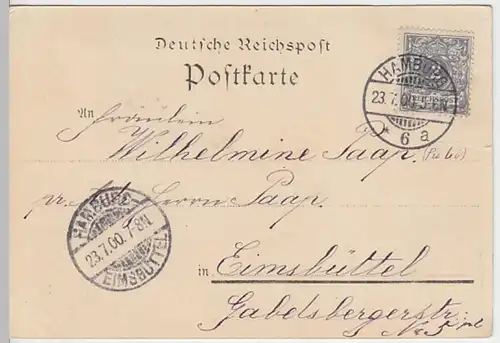 Deutsche Reichspost
Postkarte
HAMBURG
23.7.00.5-6N
* 6 a
An Fräulein
Wilhelmine Paap.
Herrn Paap.
HAMBURG
23.7.00.7-8N
EIMSBÜTTEL
in Eimsbüttel
Gabelsbergerstr:
No 5